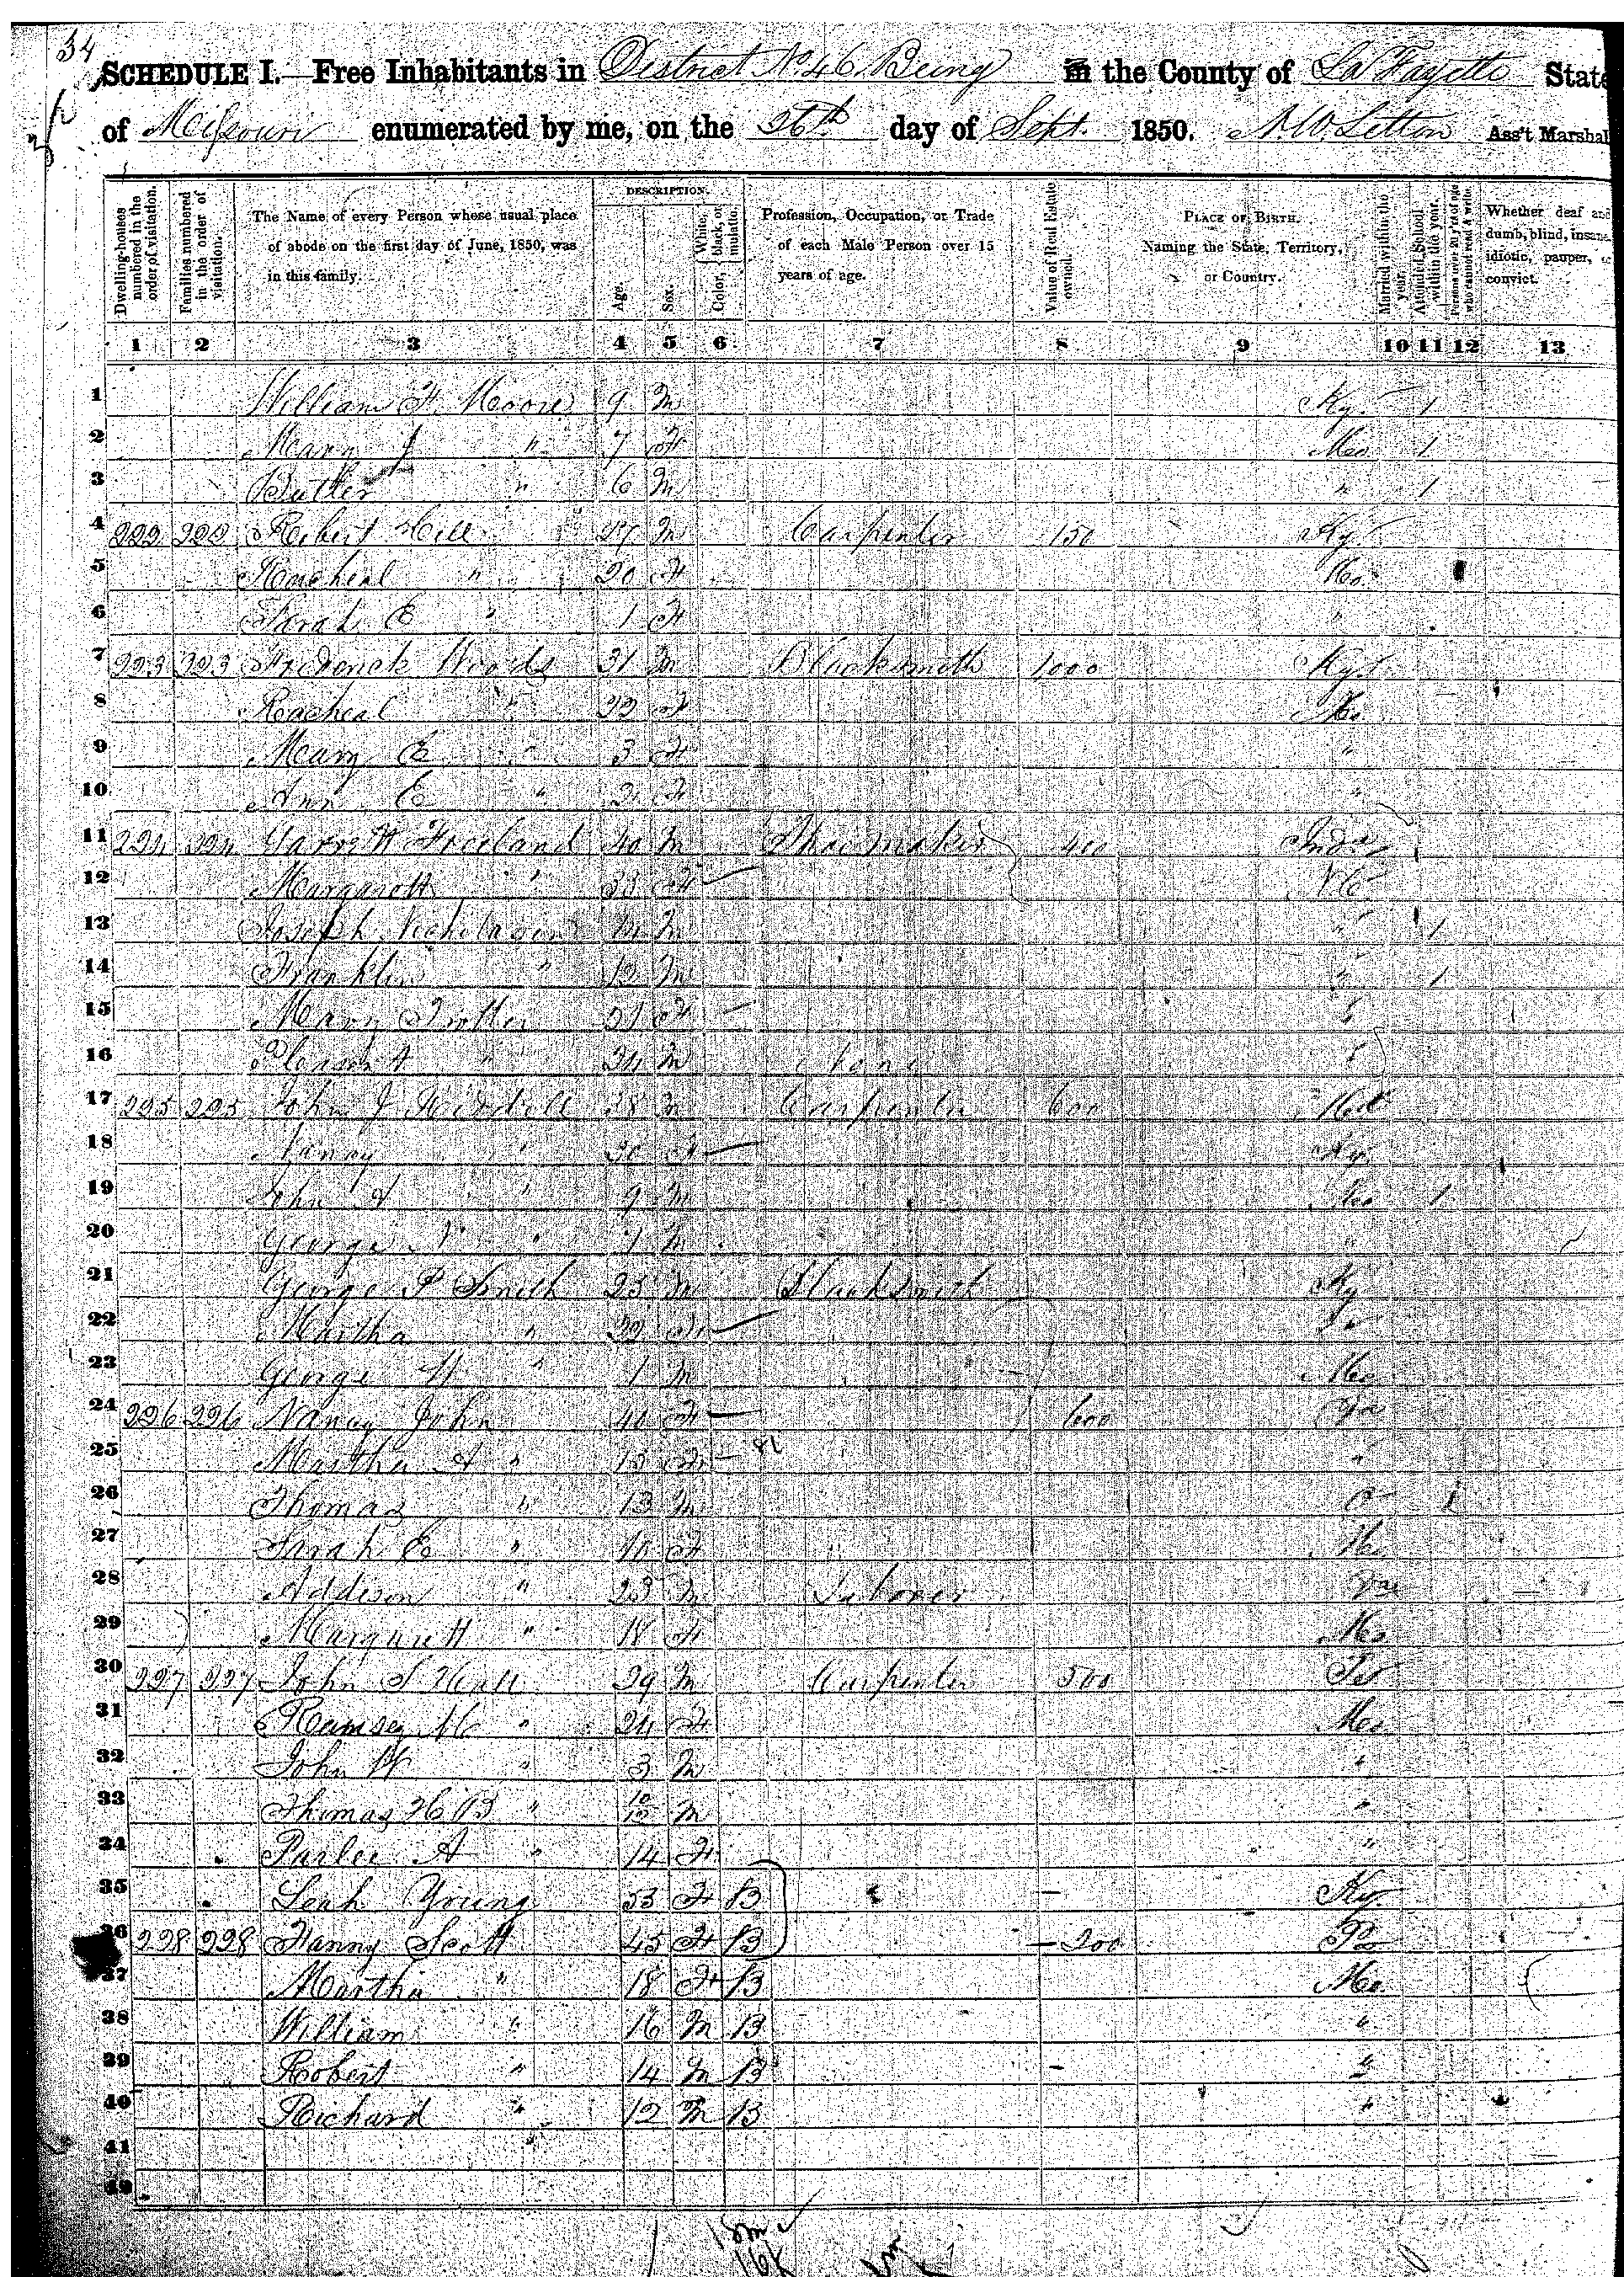 34
SCHEDULE I.—Free Inhabitants in District No 46 Being in the County of La Fayette State
of Missouri enumerated by me, on the 26th day of Sept. 1850. Ass't Marshal
Dwelling-houses numbered in the order of visitation.
Families numbered in the order of visitation.
The Name of every Person whose usual place of abode on the first day of June, 1850, was in this family.
DESCRIPTION.
Age.
Sex.
Color, White, black, or mulatto.
Profession, Occupation, or Trade of each Male Person over 15 years of age.
Value of Real Estate owned.
PLACE OF BIRTH. Naming the State, Territory, or Country.
Married within the year.
Attended School within the year.
Persons over 20 y'rs of age who cannot read & write.
Whether deaf and dumb, blind, insane, idiotic, pauper, or convict.
1 2 3 4 5 6 7 8 9 10 11 12 13
1 William H. Moore 9 M Ky. 1
2 Mary J " 7 F Mo. 1
3 Butler " 6 M " 1
4 222 222 Robert Hill 27 M Carpenter 150 Ky
5 Racheal " 20 F Mo.
6 Sarah E " 1 F "
7 223 223 Frederick Woods 31 M Blacksmith 1000 Ky
8 Racheal " 22 F Mo
9 Mary E " 3 F "
10 Ann E " 2 F "
11 224 224 Garrett Freeland 40 M Shoemaker 400 Inda
12 Margarett " 33 F NC
13 Joseph Nicholason M " 1
14 Franklin " 12 M " 1
15 Mary Trotter 21 F
16 " 24 M
17 225 225 John J 38 M Carpenter 600
18 Nancy " 30 F Ky.
19 John " 9 M Mo 1
20 George " M "
21 George P Smith 25 M Blacksmith Ky
22 Martha " 22 F
23 George W " 1 M Mo
24 226 226 Nancy John 40 F 600 Va
25 Martha A " 15 F "
26 Thomas " 13 M
27 Sarah E " 10 F Mo
28 Addison " 23 M Laborer Va
29 Margarett " 18 F Mo
30 227 227 John S Hall 29 M Carpenter 500
31 Ramsey " 24 F Mo.
32 John W " 3 M "
33 Thomas H B " 10/12 M "
34 Parlee A " 14 F "
35 Leah Young 53 F B Ky.
36 228 228 Fanny Scott 45 F B 200
37 Martha " 18 F B Mo.
38 William " 16 M B "
39 Robert " 14 M B "
40 Richard " 12 M B "
41
42